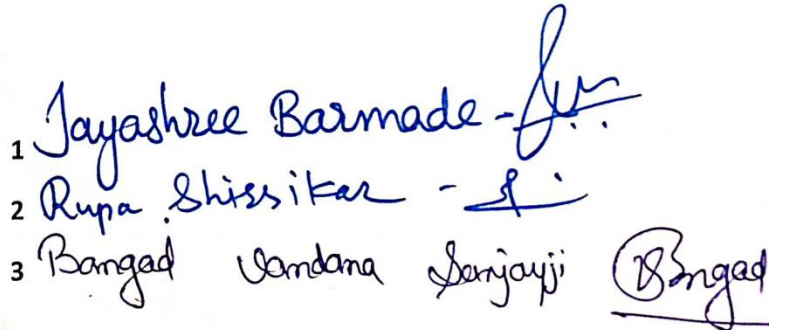 1 Jayashree Barmade -
2 Rupa Shirsikar -
3 Bangad Vandana Sanjayji Bangad